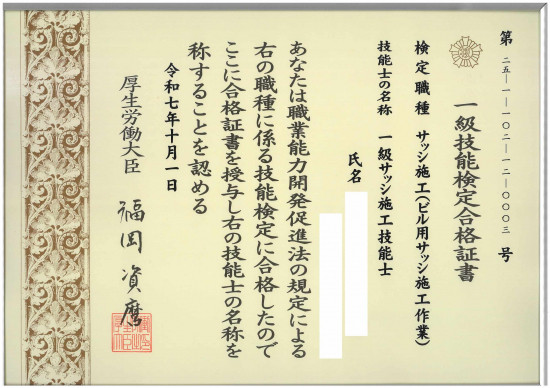 第 二五―一―一〇二―一二―〇〇〇三 号
一級技能検定合格証書
検定職種 サッシ施工(ビル用サッシ施工作業)
技能士の名称 一級サッシ施工技能士
氏名
あなたは職業能力開発促進法の規定による
右の職種に係る技能検定に合格したので
ここに合格証書を授与し右の技能士の名称を
称することを認める
令和七年十月一日
厚生労働大臣 福岡資麿